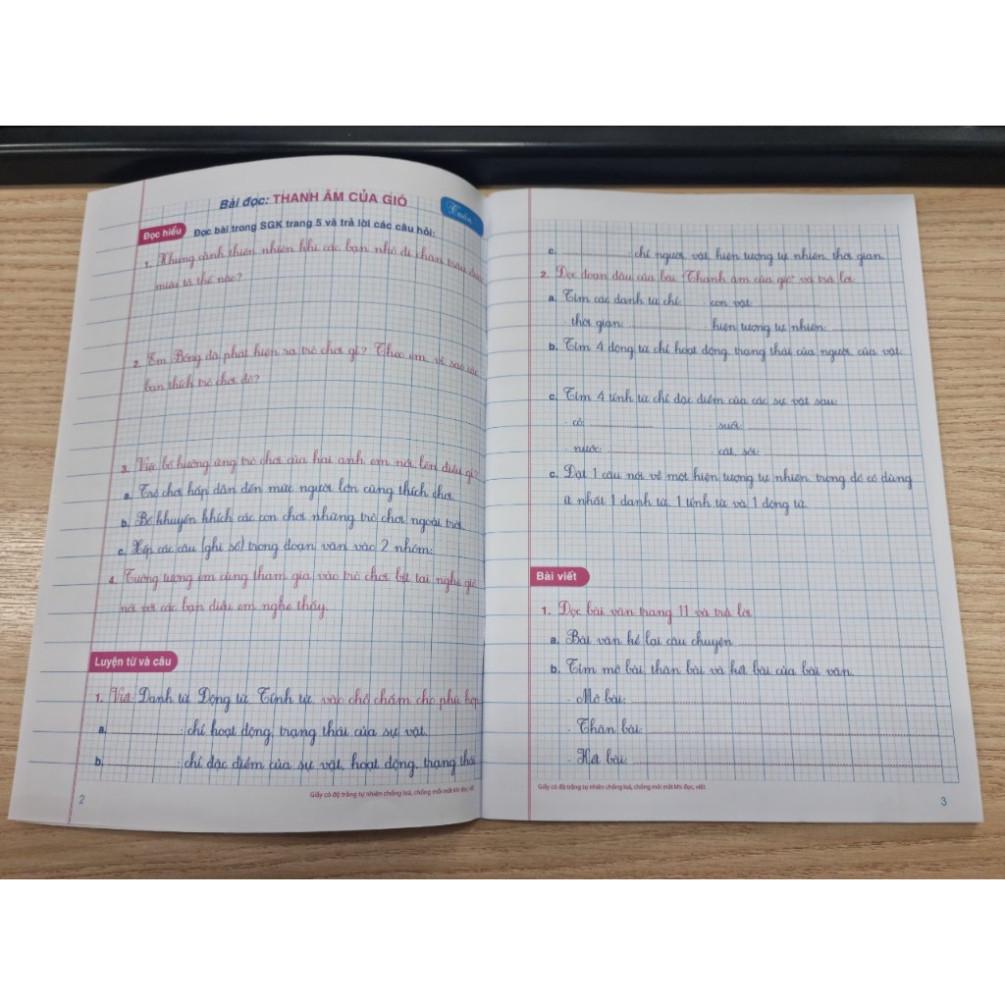 Bài đọc: THANH ÂM CỦA GIÓ
Tuần
Đọc hiểu
Đọc bài trong SGK trang 5 và trả lời các câu hỏi:
1. Khung cảnh thiên nhiên khi các bạn nhỏ đi chăn trâu được
miêu tả thế nào?
2. Em Bống đã phát hiện ra trò chơi gì? Theo em, vì sao các
bạn thích trò chơi đó?
3. Việc bố hưởng ứng trò chơi của hai anh em nói lên điều gì?
a. Trò chơi hấp dẫn đến mức người lớn cũng thích chơi.
b. Bố khuyến khích các con chơi những trò chơi ngoài trời.
c. Xếp các câu (ghi số) trong đoạn văn vào 2 nhóm:
4. Tưởng tượng em cùng tham gia vào trò chơi bịt tai nghe gió,
nói với các bạn điều em nghe thấy.
Luyện từ và câu
1. Viết Danh từ, Động từ, Tính từ, vào chỗ chấm cho phù hợp
a. : chỉ hoạt động, trạng thái của sự vật.
b. : chỉ đặc điểm của sự vật, hoạt động, trạng thái
2
Giấy có độ trắng tự nhiên chống loá, chống mỏi mắt khi đọc, viết
c. : chỉ người, vật, hiện tượng tự nhiên, thời gian
2. Đọc đoạn đầu của bài "Thanh âm của gió" và trả lời
a. Tìm các danh từ chỉ: con vật:
- thời gian: hiện tượng tự nhiên:
b. Tìm 4 động từ chỉ hoạt động, trạng thái của người, của vật:
c. Tìm 4 tính từ chỉ đặc điểm của các sự vật sau:
- cỏ: - suối:
- nước: cát, sỏi:
c. Đặt 1 câu nói về một hiện tượng tự nhiên, trong đó có dùng
ít nhất 1 danh từ, 1 tính từ và 1 động từ.
Bài viết
1. Đọc bài văn trang 11 và trả lời
a. Bài văn kể lại câu chuyện
b. Tìm mở bài, thân bài và kết bài của bài văn.
- Mở bài:
- Thân bài:
- Kết bài:
Giấy có độ trắng tự nhiên chống loá, chống mỏi mắt khi đọc, viết
3